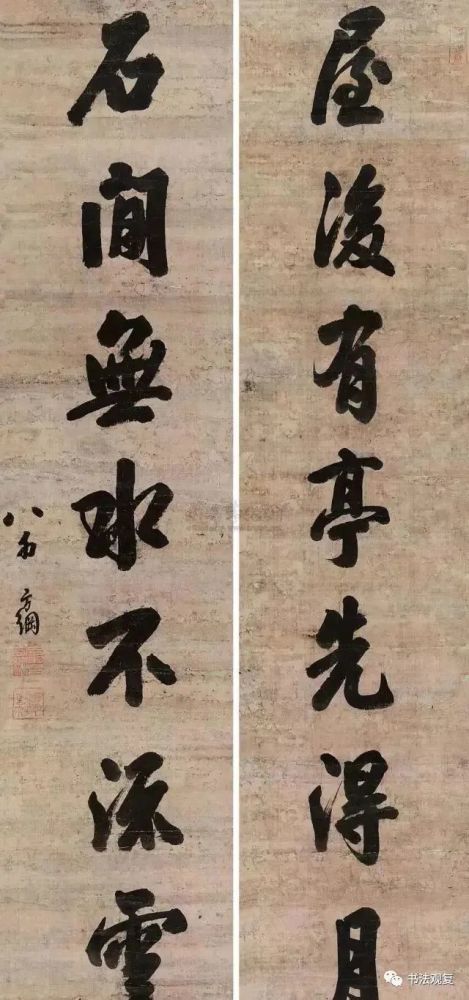 屋後有亭先得月
石間無水不流雲
翁方綱
书法观复